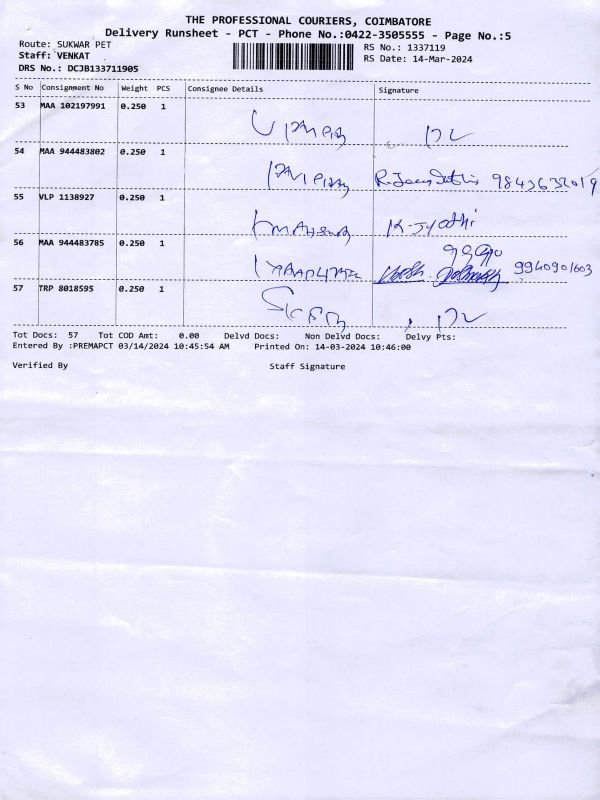 THE PROFESSIONAL COURIERS, COIMBATORE
Delivery Runsheet - PCT - Phone No.:0422-3505555 - Page No.:5
Route: SUKWAR PET
RS No.: 1337119
Staff: VENKAT
RS Date: 14-Mar-2024
DRS No.: DCJB133711905
S No Consignment No Weight PCS Consignee Details Signature
53 MAA 102197991 0.250 1
54 MAA 944483802 0.250 1
55 VLP 1138927 0.250 1
K-Jyothi
56 MAA 944483785 0.250 1
9940901603
57 TRP 8018595 0.250 1
Tot Docs: 57 Tot COD Amt: 0.00 Delvd Docs: Non Delvd Docs: Delvy Pts:
Entered By :PREMAPCT 03/14/2024 10:45:54 AM Printed On: 14-03-2024 10:46:00
Verified By Staff Signature